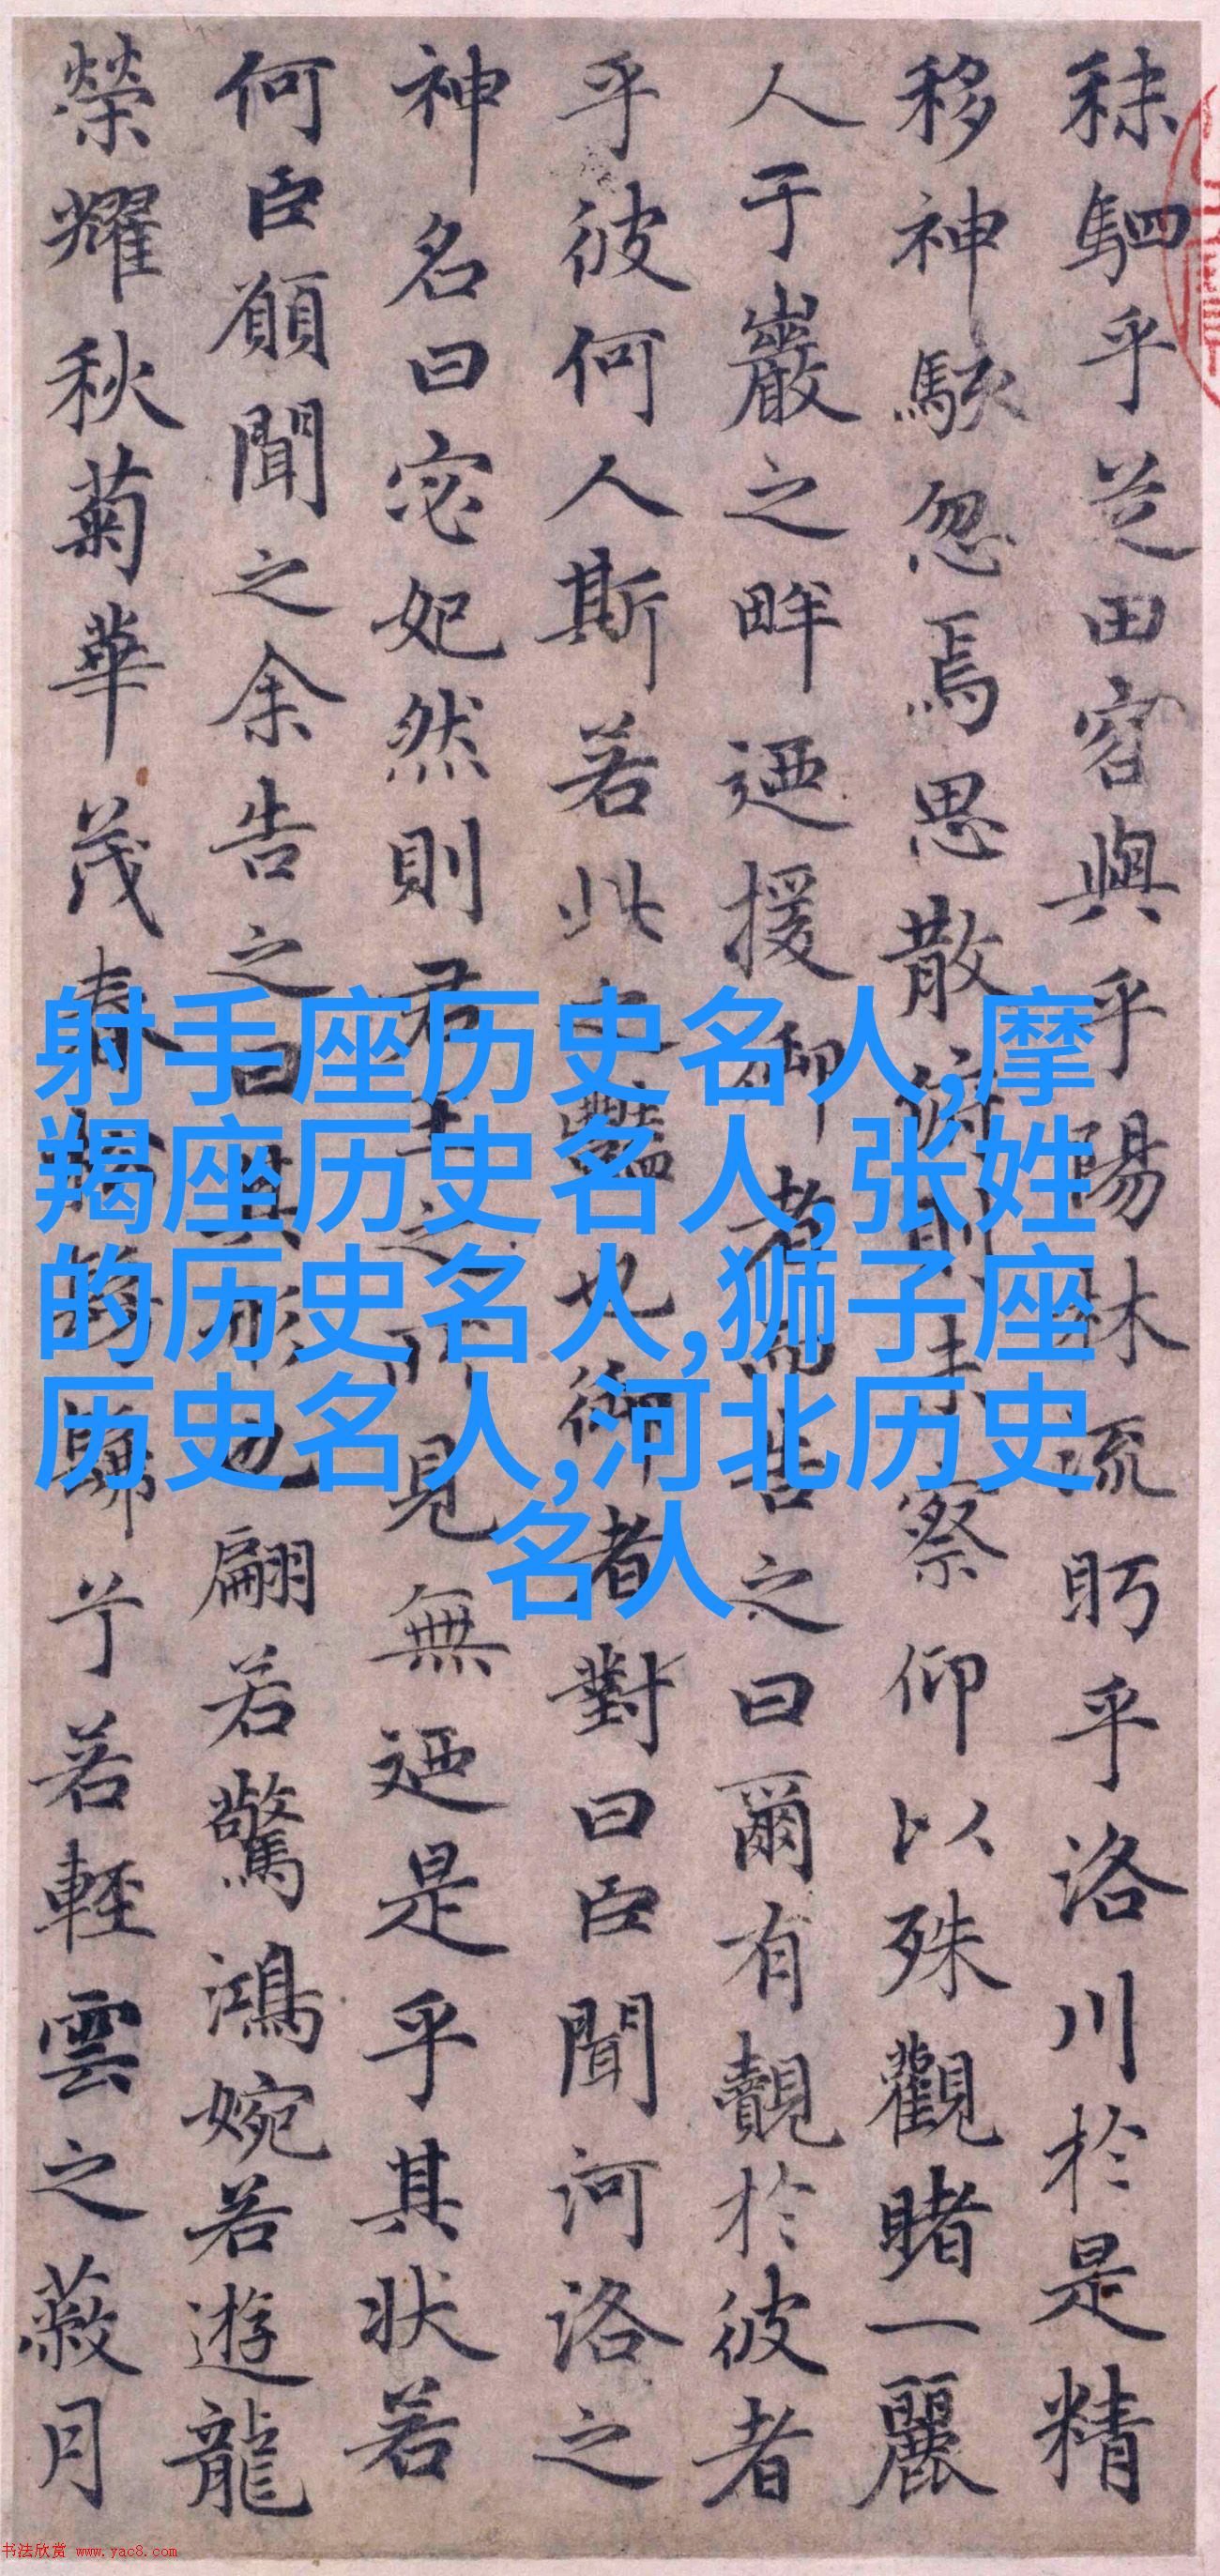 秣駟乎芝田容與乎陽林流眄乎洛川於是精
移神駭忽焉思散俯則未察仰以殊觀睹一麗
人于巖之畔迺援御者而告之曰爾有覿於彼者
乎彼何人斯若此之豔也御者對曰臣聞河洛之
神名曰宓妃然則君王之所見無迺是乎其状若
何臣願聞之余告之曰其形也翩若驚鴻婉若遊龍
榮耀秋菊華茂春松髣髴兮若輕雲之蔽月
射手座历史名人,摩
羯座历史名人,张姓
的历史名人,狮子座
历史名人,河北历史
名人
书法欣赏 www.yac8.com